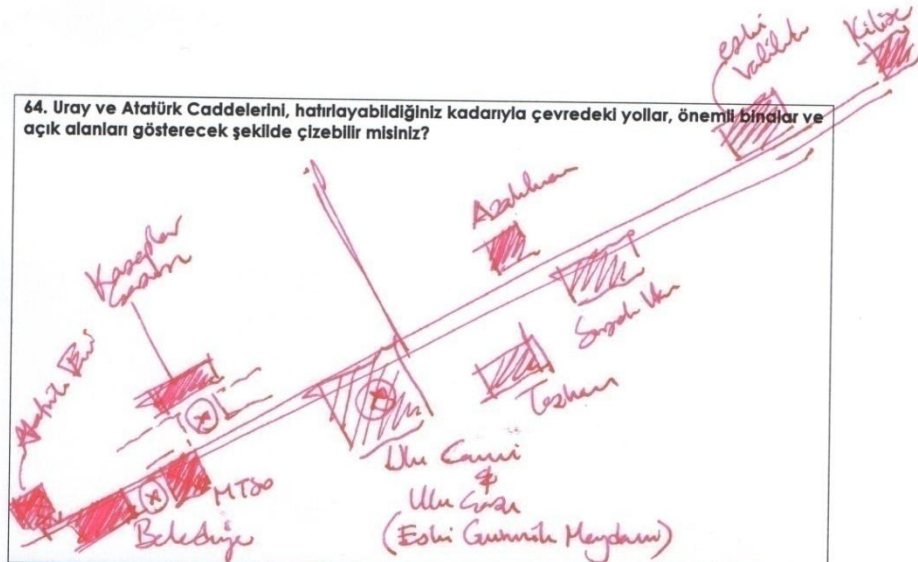 64. Uray ve Atatürk Caddelerini, hatırlayabildiğiniz kadarıyla çevredeki yollar, önemli binalar ve
açık alanları gösterecek şekilde çizebilir misiniz?
eski
valilik
Kilise
Azakhan
Kasaplar
Çarşısı
Atatürk Evi
Taşhan
MTSO
Belediye
Ulu Cami
&
Ulu Çarşı
(Eski Gümrük Meydanı)